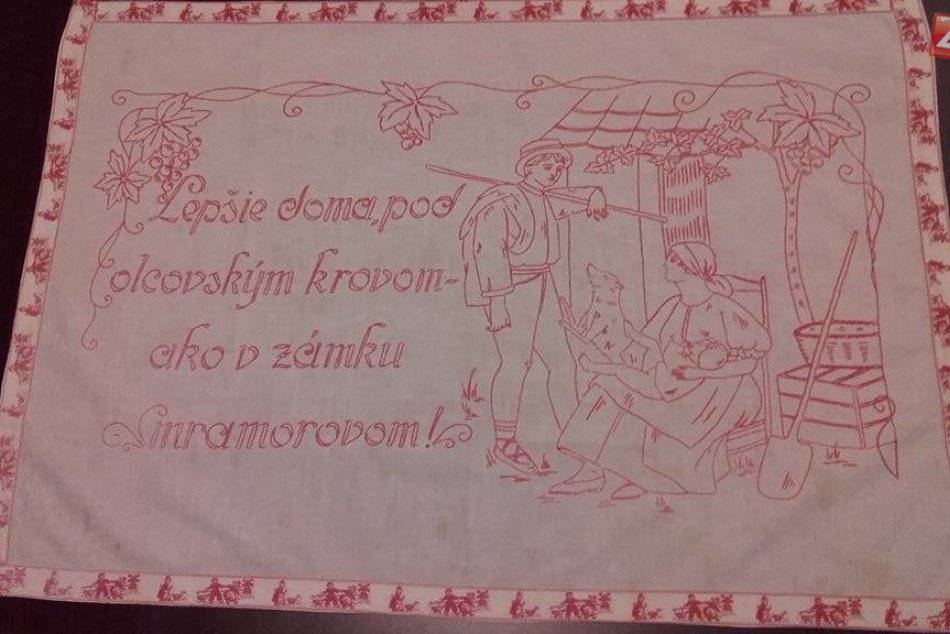 Lepšie doma, pod
otcovským krovom-
ako v zámku
mramorovom!